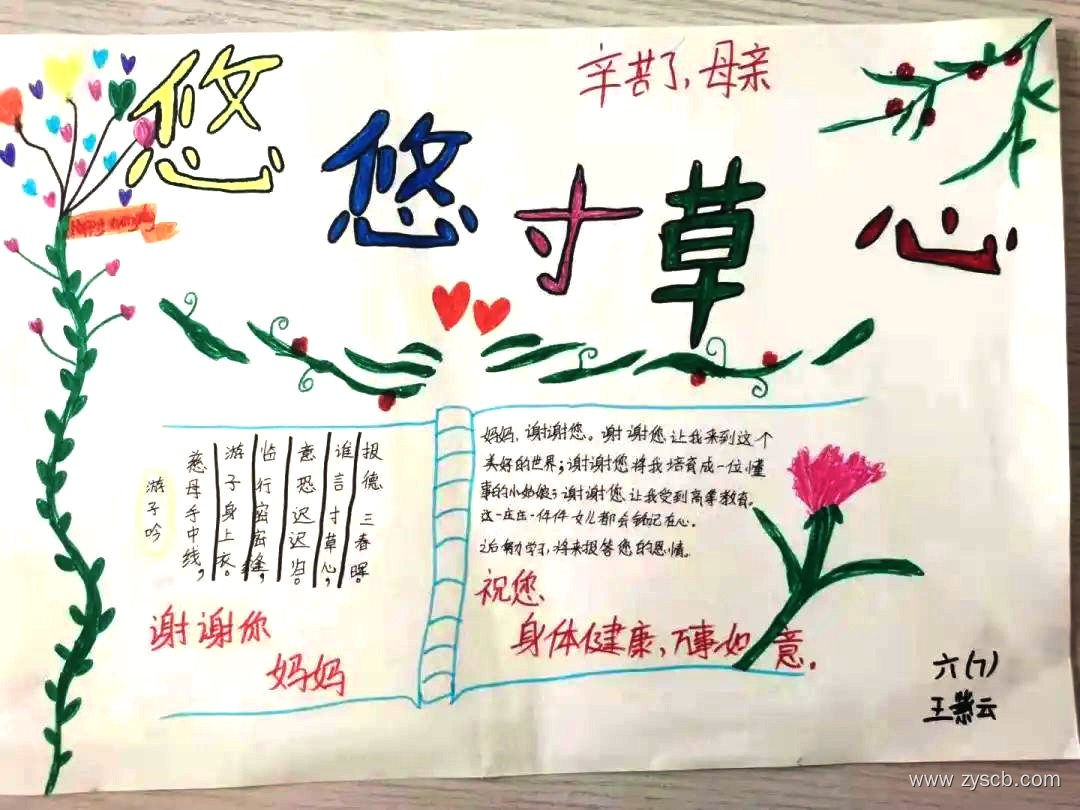 辛苦了,母亲
悠悠寸草心
游子吟
慈母手中线,
游子身上衣。
临行密密缝,
意恐迟迟归。
谁言寸草心,
报德三春晖。
谢谢你
妈妈
妈妈,谢谢您。谢谢您让我来到这个
美好的世界;谢谢您将我培育成一位懂
事的小姑娘;谢谢您让我受到高等教育。
这一庄庄一件件女儿都会铭记在心。
之后努力学习,将来报答您的恩情。
祝您
身体健康,万事如意。
六(7)
王燕云
www.zyscb.com